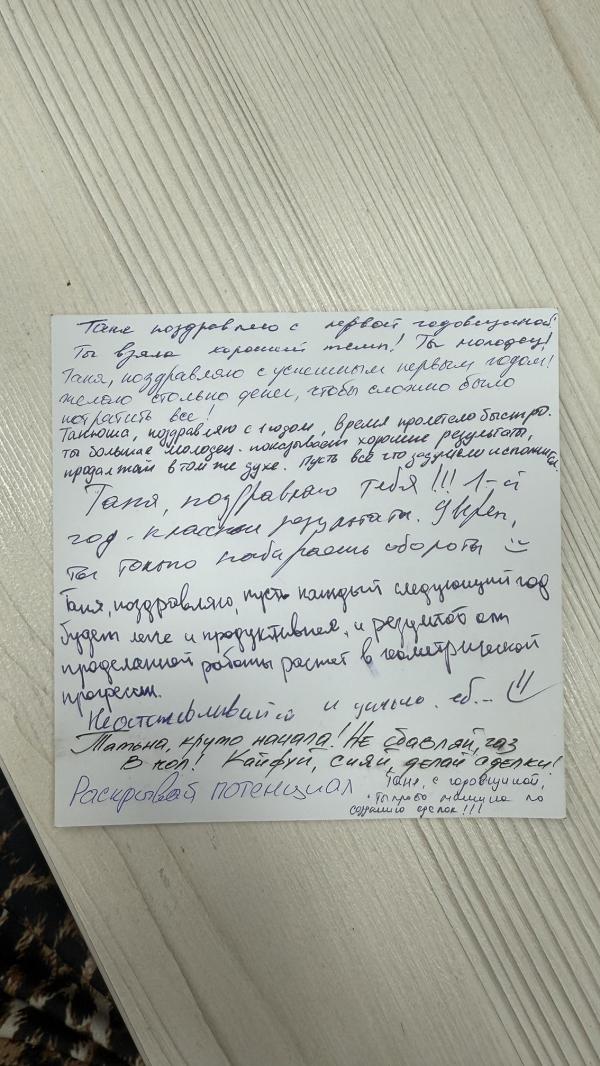 Таня поздравляю с первой годовщиной!
Ты взяла хороший темп! Ты молодец!
Таня, поздравляю с успешным первым годом!
желаю столько денег, чтобы сложно было
потратить все!
Танюша, поздравляю с 1 годом, время пролетело быстро.
ты большая молодец. показываешь хорошие результаты,
продолжай в том же духе. Пусть всё что задумано исполнится.
Таня, поздравляю тебя!!! 1-й
год - классные результаты. Уверен,
ты только набираешь обороты
Таня, поздравляю, пусть каждый следующий год
будет легче и продуктивнее, и результат от
проделанной работы растет в геометрической
прогрессии.
Неостанавливайся и
Татьяна, круто начала! Не сбавляй, газ
в пол! Кайфуй, сияй, делай сделки!
Раскрывай потенциал
Таня, с годовщиной,
ты просто машина по
созданию сделок!!!